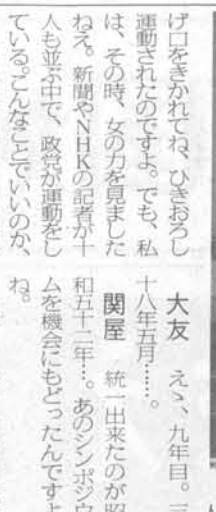 げ口をきかれてね、ひきおろし
運動されたのですよ。でも、私
は、その時、女の力を見ました
ねえ。新聞やNHKの記者が十
人も並ぶ中で、政党が運動をし
ている。こんなことでいいのか、
大友　えゝ、九年目。三
十八年五月……。
関屋　統一出来たのが昭
和五十二年…。あのシンポジウ
ムを機会にもどったんですよ
ね。